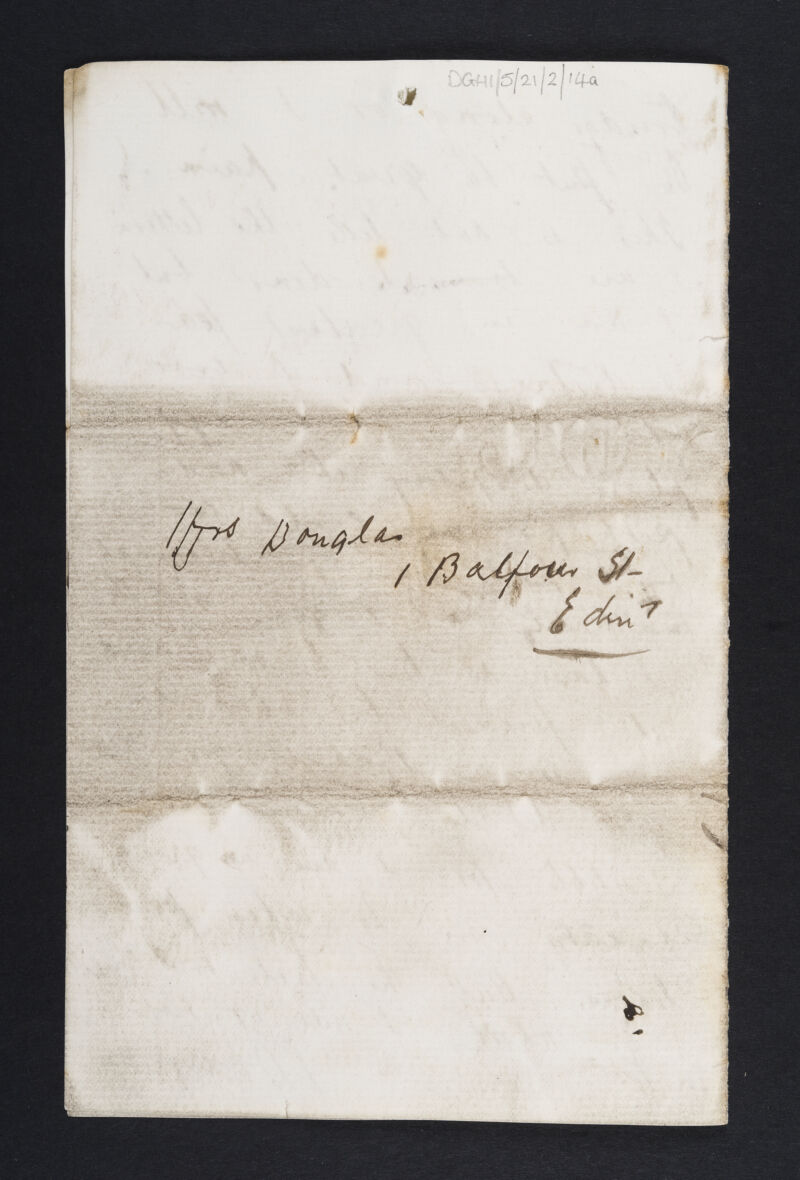 DGH1/5/21/2/14a
Mrs Douglas
1 Balfour St
Edinr